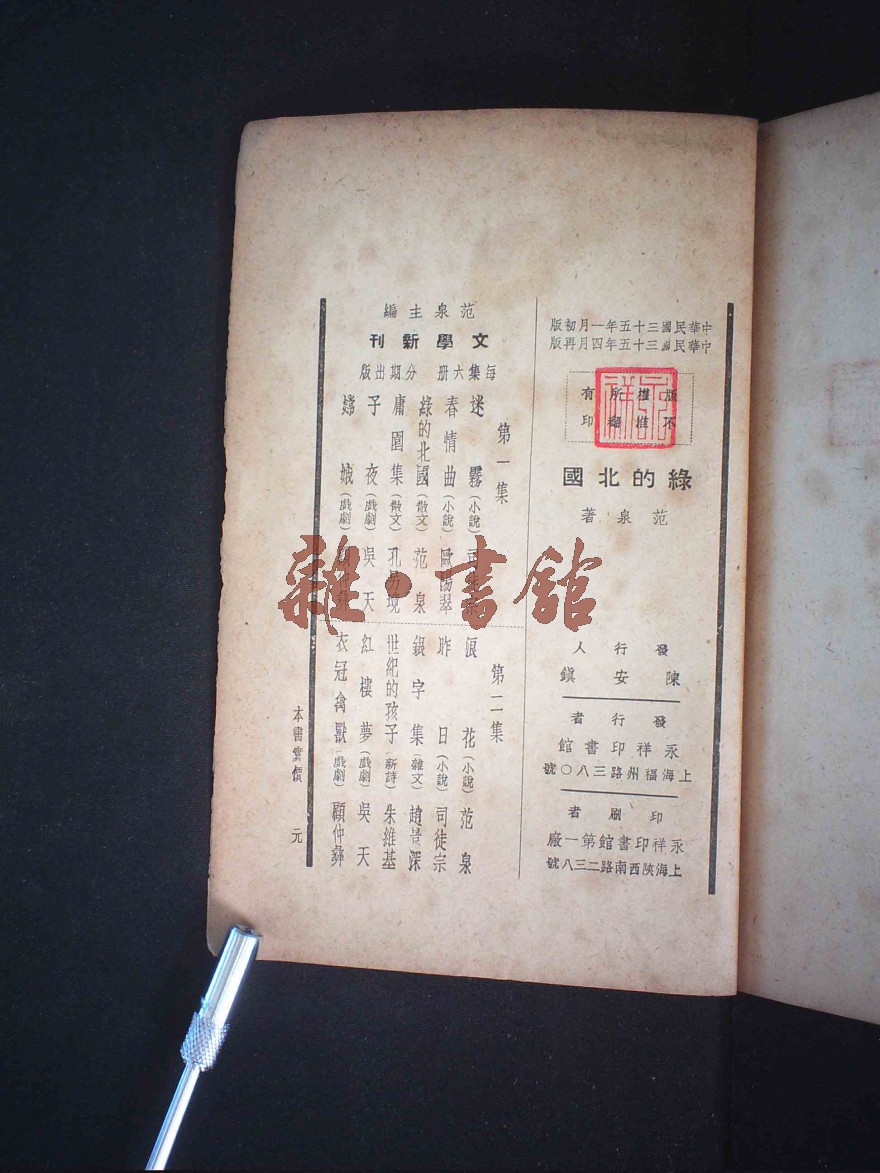 中華民國三十五年一月初版
中華民國三十五年四月再版
版權所有
不准翻印
綠的北國
范泉著
發行人
陳安鎭
發行者
永祥印書館
上海福州路三八〇號
印刷者
永祥印書館第一廠
上海陝西南路二三八號
范泉主編
文學新刊
每集六册 分期出版
第一集
迷霧（小說）
春情曲（小說）歐陽翠
綠的北國（散文）范泉
庸園集（散文）孔另境
子夜（戲劇）吳天
嫦娥（戲劇）顧仲彝
第二集
浪花（小說）范泉
昨日（小說）司徒宗
銀字集（雜文）趙景深
世紀的孩子（新詩）朱維基
紅樓夢（戲劇）吳天
衣冠禽獸（戲劇）顧仲彝
本書實價 元
雜·書館